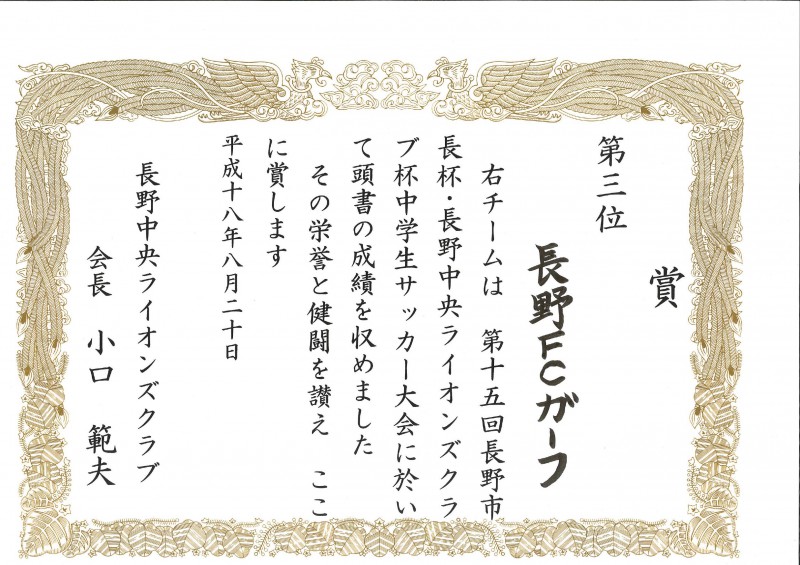 賞
第三位
長野FCガーフ
右チームは　第十五回長野市
長杯・長野中央ライオンズクラ
ブ杯中学生サッカー大会に於い
て頭書の成績を収めました
その栄誉と健闘を讃え　ここ
に賞します
平成十八年八月二十日
長野中央ライオンズクラブ
会長　小口　範夫